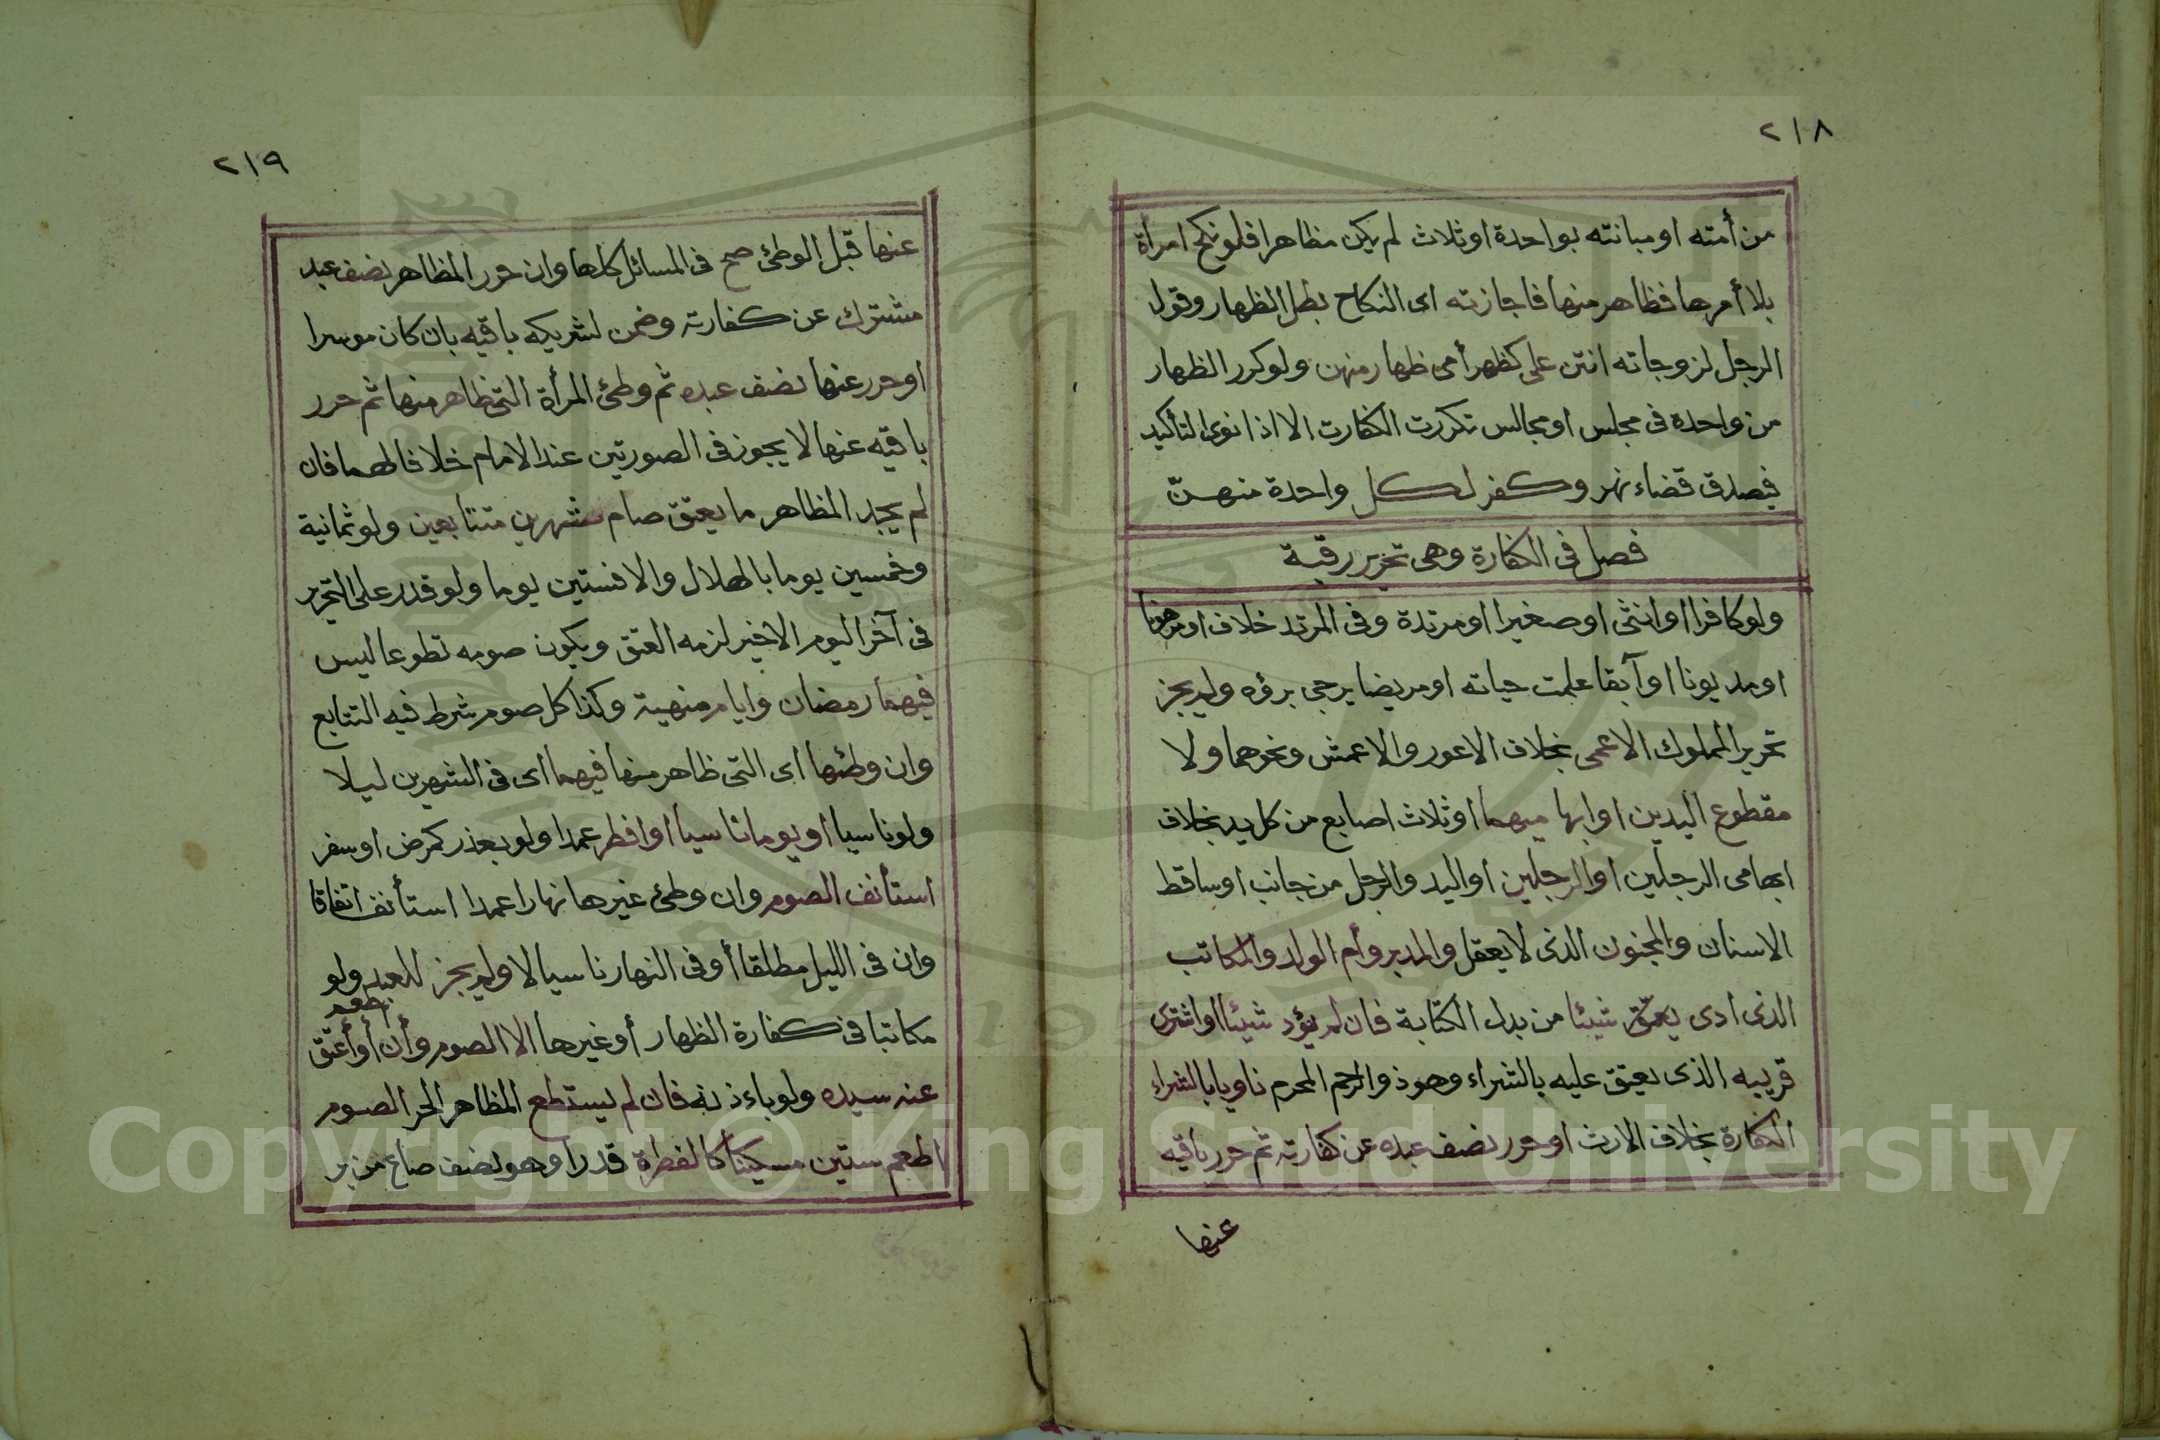 ٢١٨
من أمته او مبانته بواحدة او ثلاث لم يكن مظاهرا فلو نكح امرأة
بلا أمرها فظاهر منها فاجازته اى النكاح بطل الظهار وقول
الرجل لزوجاته انتن على كظهر أمى ظهار منهن ولو كرر الظهار
من واحدة فى مجلس او مجالس تكررت الكفارت الا اذا نوى التأكيد
فيصدق قضاء نهر وكفر لكل واحدة منهنّ
فصل فى الكفارة وهى تحرير رقبة
ولو كافرا او انثى او صغيرا او مرتدة وفى المرتد خلاف او مرهونا
او مديونا او آبقا علمت حياته او مريضا يرجى برؤه ولم يجز
تحرير المملوك الاعمى بخلاف الاعور والاعمش ونحوهما ولا
مقطوع اليدين او ابهاميهما او ثلاث اصابع من كل يد بخلاف
ابهامى الرجلين او الرجلين او اليد والرجل من جانب او ساقط
الاسنان والمجنون الذى لا يعقل والمدبر وأم الولد والمكاتب
الذى ادى شيئا من بدل الكتابة فان لم يؤد شيئا او اشترى
قريبه الذى يعتق عليه بالشراء وهو ذو الرحم المحرم ناويا بالشراء
الكفارة بخلاف الارث او حرر نصف عبده عن كفارته ثم حرر باقيه
عنها
٢١٩
عنها قبل الوطئ صح فى المسائل كلها وان حرر المظاهر نصف عبد
مشترك عن كفارته وضمن لشريكه باقيه بان كان موسرا
او حرر عنها نصف عبده ثم وطئ المرأة التى ظاهر منها ثم حرر
باقيه عنها لا يجوز فى الصورتين عند الامام خلافا لهما فان
لم يجد المظاهر ما يعتق صام شهرين متتابعين ولو ثمانية
وخمسين يوما بالهلال والا فستين يوما ولو قدر على التحرير
فى آخر اليوم الاخير لزمه العتق ويكون صومه تطوعا ليس
فيهما رمضان وايام منهية وكذا كل صوم شرط فيه التتابع
وان وطئها اى التى ظاهر منها فيهما اى فى الشهرين ليلا
ولو ناسيا او يوما ناسيا او افطر عمدا ولو بعذر كمرض او سفر
استأنف الصوم وان وطئ غيرها نهارا عمدا استأنف اتفاقا
وان فى الليل مطلقا أو فى النهار ناسيا لا ولم يجز للعبد ولو
اطعم
مكاتبا فى كفارة الظهار أو غيرها الا الصوم وأن أو أعتق
عنه سيده ولو باءذنه فان لم يستطع المظاهر الحر الصوم
اطعم ستين مسكينا كالفطرة قدرا وهو نصف صاع من بر
Copyright © King Saud University